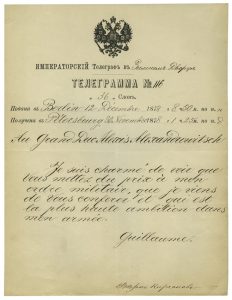 ИМПЕРАТОРСКІЙ Телеграфъ въ Зимнемъ Дворцѣ
ТЕЛЕГРАММА № 114
въ 36 Словъ.
Подана въ Berlin 12 Décembre 1878
Получена въ Petersburg 1878
Au Grand Duc Alexis Alexandrovitsch
Je suis charmé de voir que
vous mettez du prix à mon
ordre militaire, que je viens
de vous conférer et qui est
la plus haute ambition dans
mon armée.
Guillaume.